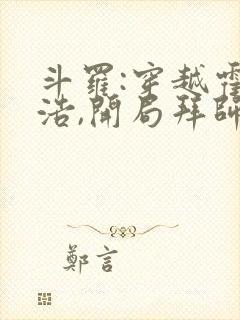 斗羅:穿越霍
浩,開局拜師
鄭言